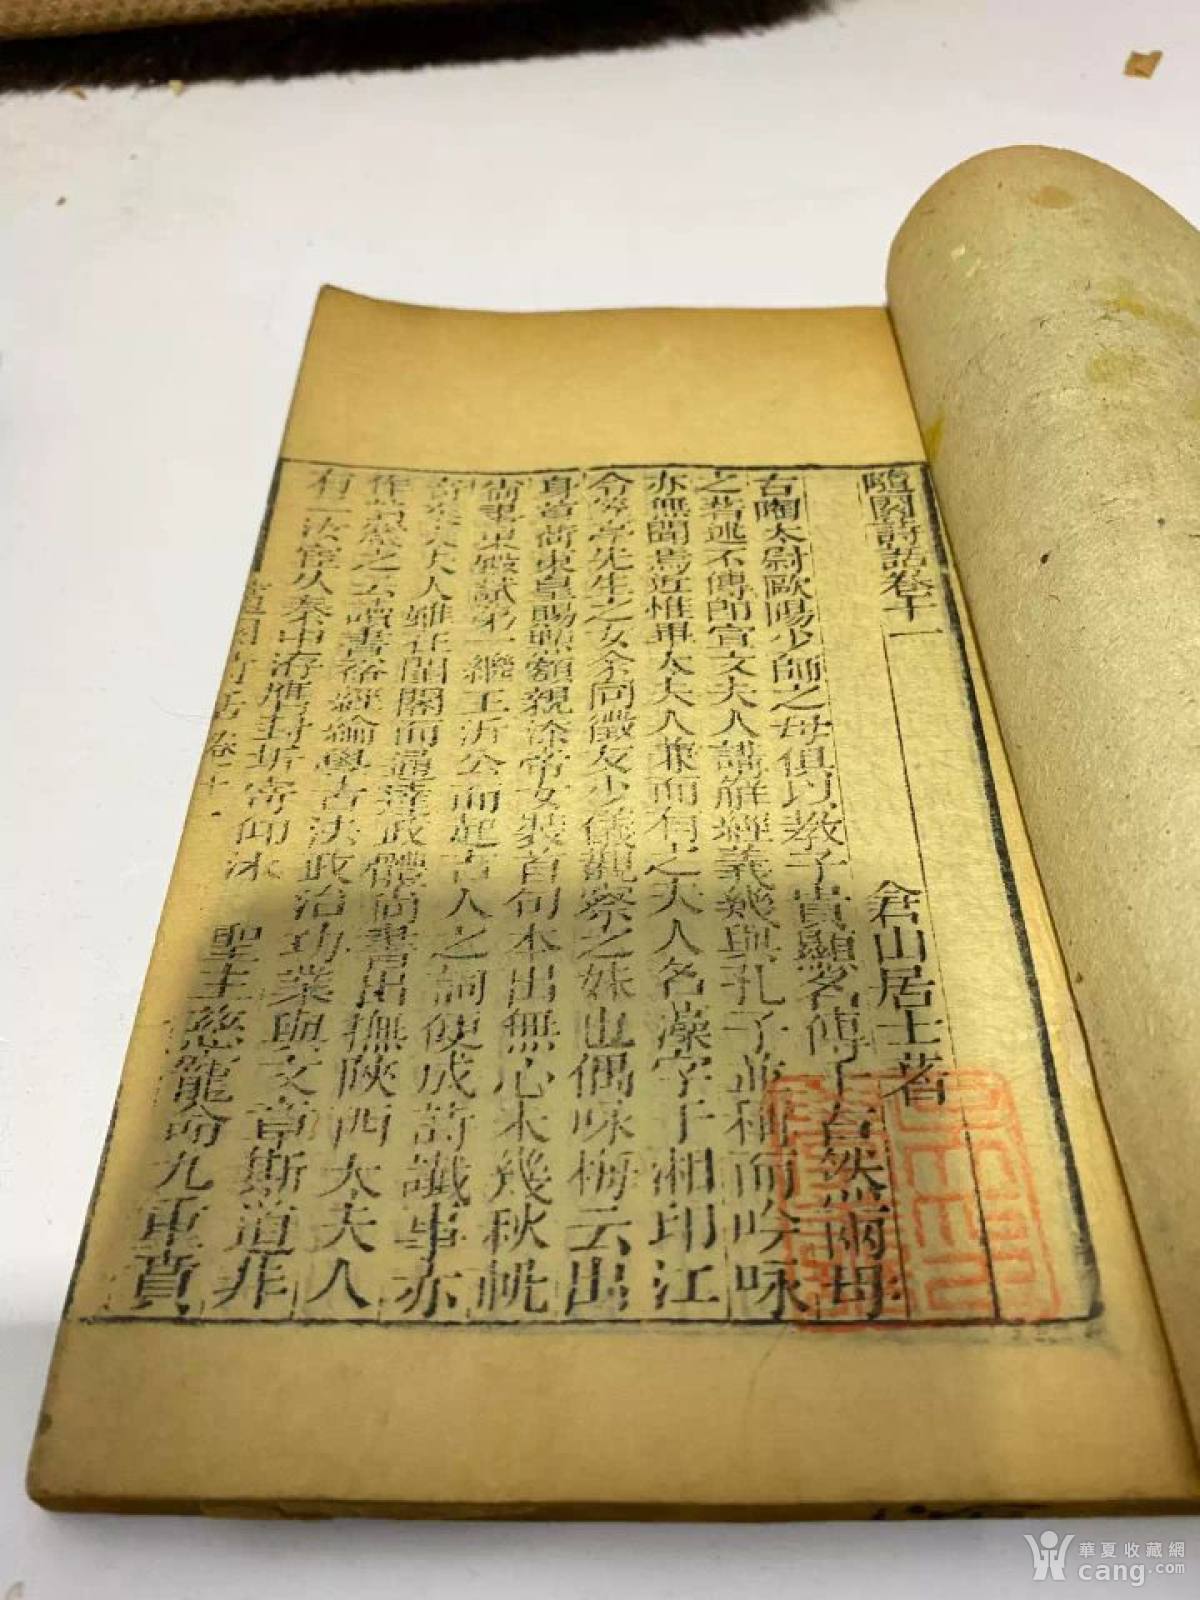 隨園詩話卷十一
倉山居士著
古陶太尉歐陽少師之母俱以教子貴顯名傳千古然兩母
之著述不傳即宣文夫人講解經義幾與孔子並稱而吟咏
亦無聞焉近惟畢太夫人兼而有之夫人名藻字于湘印江
令笏亭先生之女余同徵友少儀觀察之妹也偶咏梅云出
身首荷東皇賜點額親添帝女裝首句本出無心未幾秋帆
尚書果殿試第一繼王沂公而起古人之詞便成詩讖事亦
奇矣太夫人雖在閨閣而通達政體尚書出撫陜西太夫人
作詩勗之云讀書裕經綸學古法政治功業與文章斯道非
有二汝宦久秦中洊膺封圻寄仰沐 聖主慈寵命九重賁
隨園詩話卷十一
華夏收藏網
cang.com